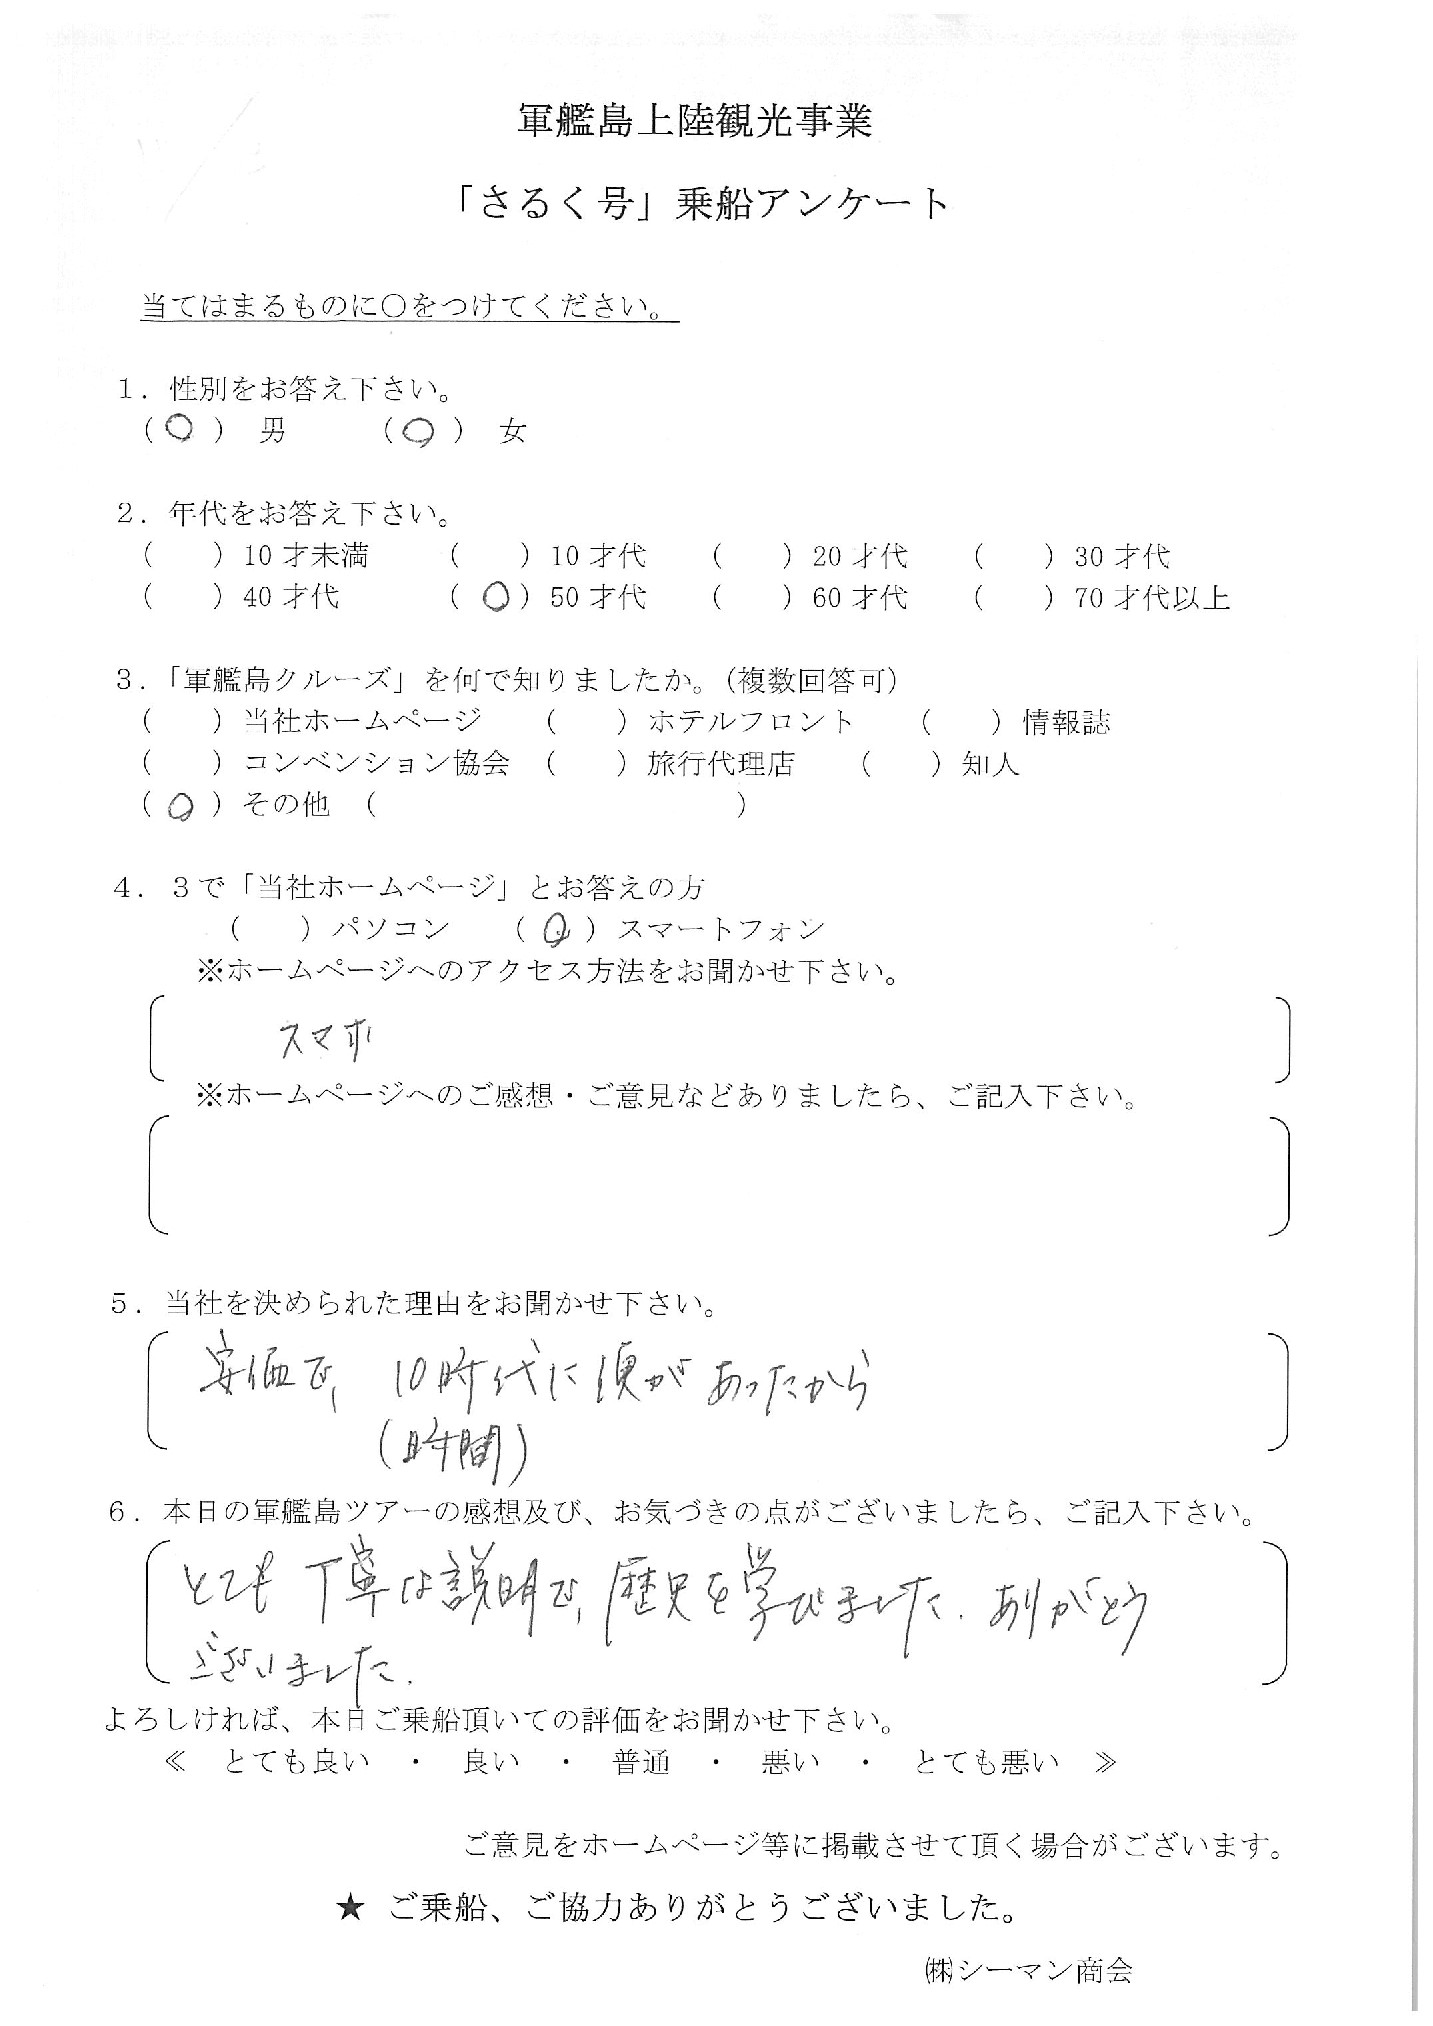 軍艦島上陸観光事業
「さるく号」乗船アンケート
当てはまるものに〇をつけてください。
1．性別をお答え下さい。
（○）男　（○）女
2．年代をお答え下さい。
（　）10才未満　（　）10才代　（　）20才代　（　）30才代
（　）40才代　（○）50才代　（　）60才代　（　）70才代以上
3．「軍艦島クルーズ」を何で知りましたか。（複数回答可）
（　）当社ホームページ　（　）ホテルフロント　（　）情報誌
（　）コンベンション協会　（　）旅行代理店　（　）知人
（○）その他　（　　　　）
4．3で「当社ホームページ」とお答えの方
（　）パソコン　（○）スマートフォン
※ホームページへのアクセス方法をお聞かせ下さい。
スマホ
※ホームページへのご感想・ご意見などありましたら、ご記入下さい。
5．当社を決められた理由をお聞かせ下さい。
安価で、10時代に便があったから
（時間）
6．本日の軍艦島ツアーの感想及び、お気づきの点がございましたら、ご記入下さい。
とても丁寧な説明で、歴史を学びました。ありがとう
ございました。
よろしければ、本日ご乗船頂いての評価をお聞かせ下さい。
≪　とても良い　・　良い　・　普通　・　悪い　・　とても悪い　≫
ご意見をホームページ等に掲載させて頂く場合がございます。
★　ご乗船、ご協力ありがとうございました。
㈱シーマン商会